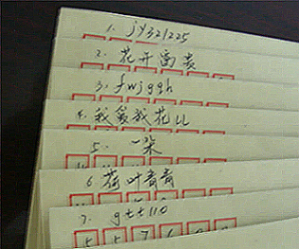 1. jy321225
2. 花开富贵
3. fwjggh
4. 我爱我花LL
5. 一朵
6. 荷叶青青
7. gtt110